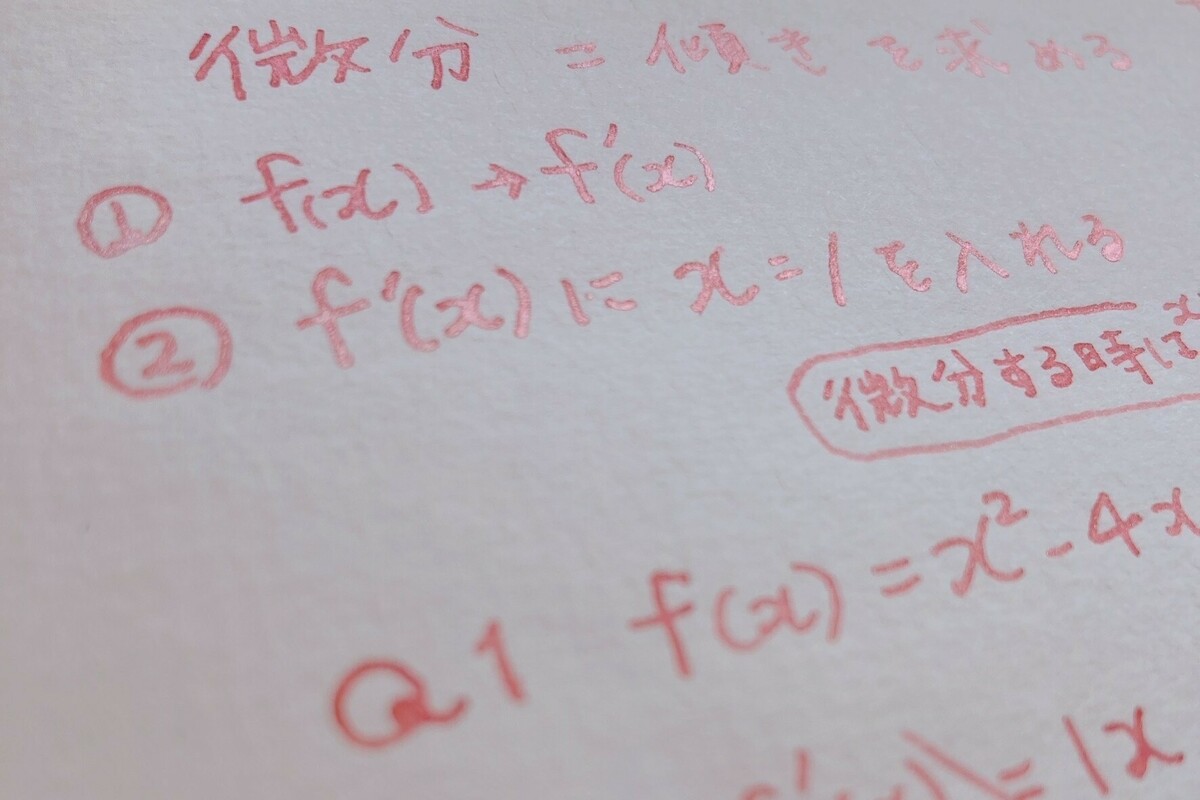 微分 = 傾きを求める
① f(x) → f'(x)
② f'(x)に x=1を入れる
微分する時は x
Q1 f(x) = x² - 4x
f'(x) = 1x